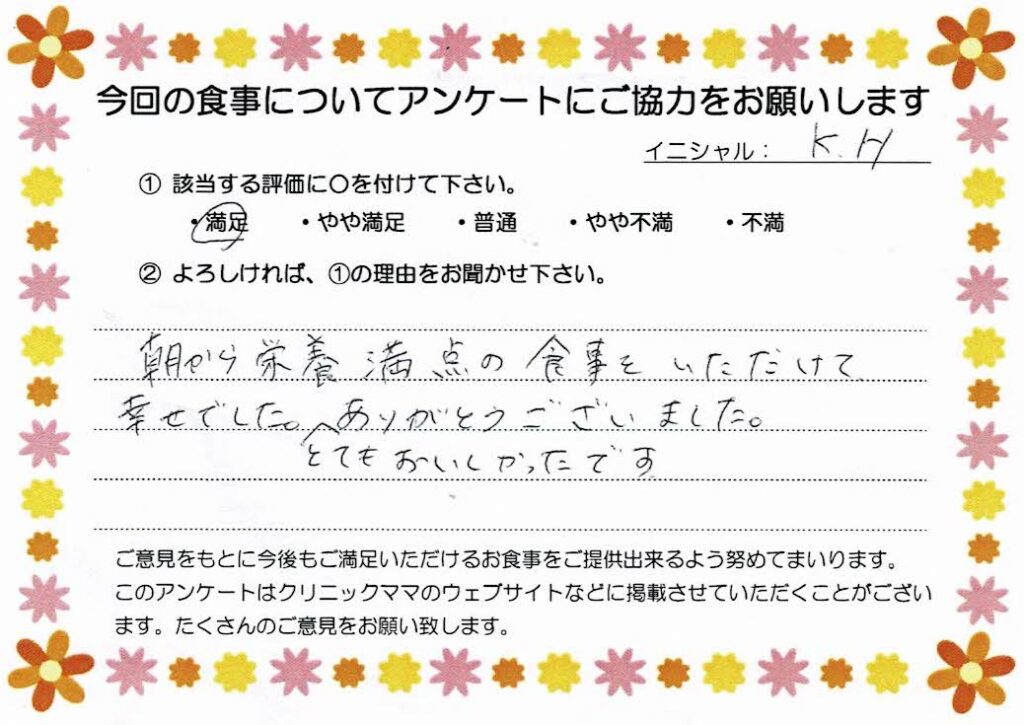 今回の食事についてアンケートにご協力をお願いします
イニシャル： K.H
① 該当する評価に〇を付けて下さい。
・満足 ・やや満足 ・普通 ・やや不満 ・不満
② よろしければ、①の理由をお聞かせ下さい。
朝から栄養満点の食事をいただけて
幸せでした。ありがとうございました。
とてもおいしかったです
ご意見をもとに今後もご満足いただけるお食事をご提供出来るよう努めてまいります。
このアンケートはクリニックママのウェブサイトなどに掲載させていただくことがござい
ます。たくさんのご意見をお願い致します。